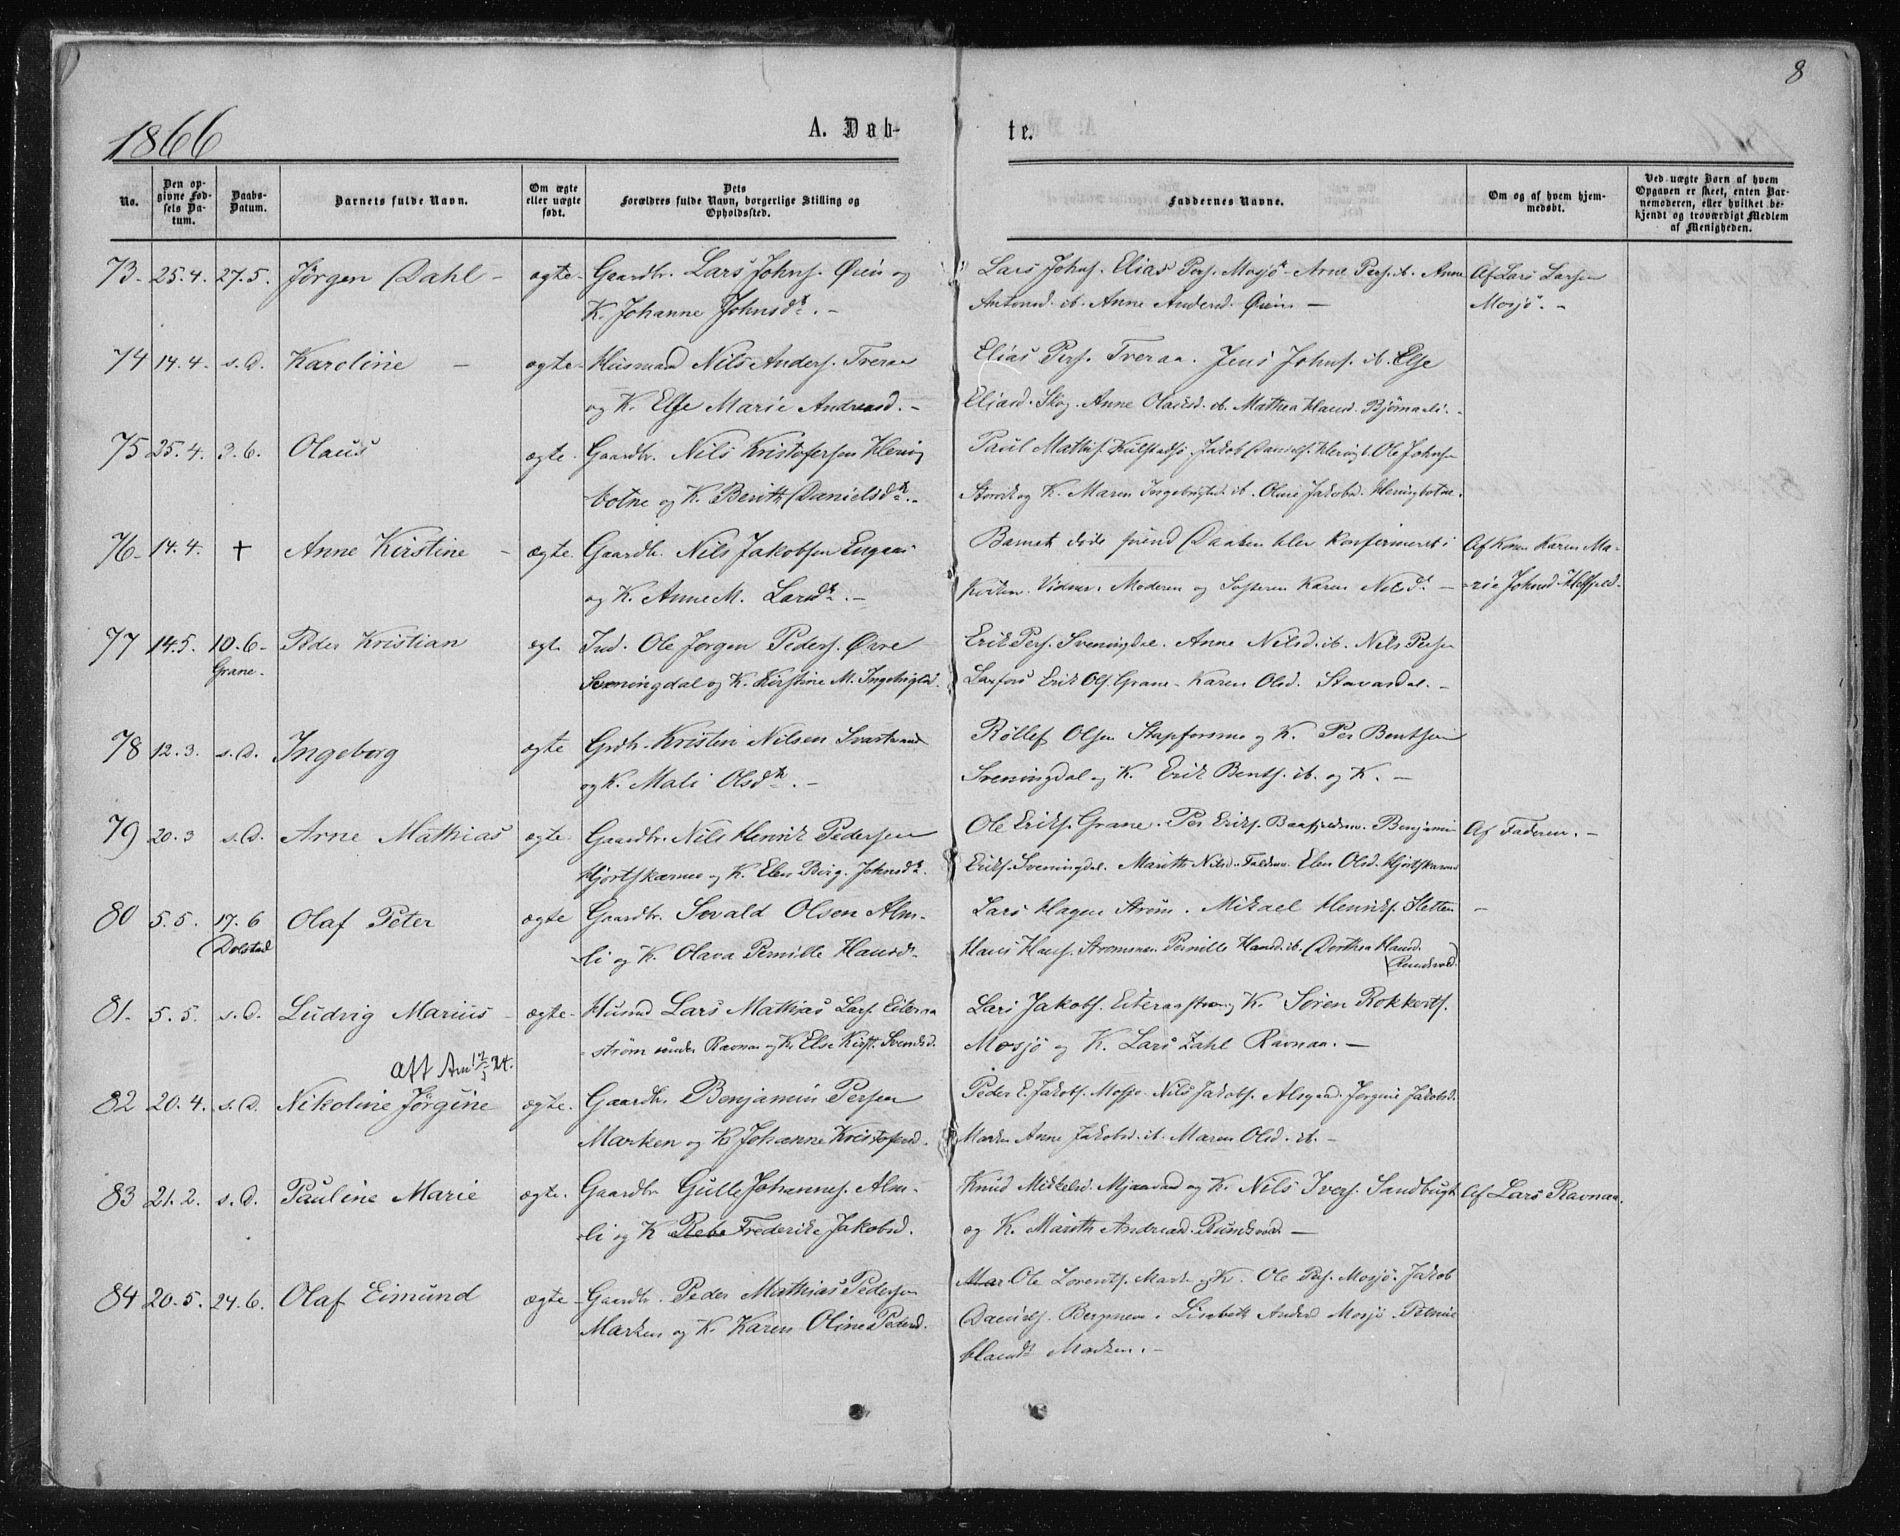 8
1866
A. Døb-
te.
No.
Den op-
givne Fød-
sels Da-
tum.
Daabs-
Datum.
Barnets fulde Navn.
Om ægte
eller uægte
født.
Dets
Forældres fulde Navn, borgerlige Stilling og
Opholdssted.
Faddernes Navne.
Om og af hvem hjem-
medøbt.
Ved uægte Børn af hvem
Opgaven er skeet, enten Bar-
nemoderen, eller hvilket be-
kjendt og troværdigt Medlem
af Menigheden.
73- 25.4. 27.5. Jørgen Dahl - ægte- Gaardbr. Lars Johns. Øien og
K. Johanne Johnsdt. -
Lars Johns. Elias Pers. Mosjö - Arne Pers. ib. Anne
Antonsd. ib. Anne Andersd. Øien -
Af Lars Larsen
Mosjö. -
74 14.4. s.D. Karoline - ægte- Husmand Nils Anders. Treraa
og K. Else Marie Andreasd. -
Elias Pers. Treraa. Jens Johns. ib. Else
Eliasd. Skog. Anne Olausd. ib. Mathea Hansd. Bjørnaali. -
75 25.4. 3.6. Olaus ægte. Gaardbr. Nils Kristofersen Hering
botne og K. Berith Danielsdt. -
Paul Mattis. Kulstadsjö. Jakob Daniels. Hering b. Ole Johnsen
og K. Maren Ingebrigtsd. ib. Oline Jakobsd. Heringbotne.
76- 14.4. † Anne Kirstine - ægte. Gaardb. Nils Jakobsen Engaas
og K. Anne M. Larsdt. -
Barnet døde førend Daaben blev konfirmeret i
Kirken. Vidner: Moderen og Søsteren Karen Nilsdt. -
Af Konen Karen Ma-
-rie Johnsd.
77 14.5. 10.6- Peder Kristian ægt. Ind. Ole Jørgen Peders. Øvre
Grane.
Sveningdal og K. Kirstine M. Ingebrigtsd.
Erik Pers. Sveningdal. Anne Nilsd. ib. Nils Persen
Laxfors Erik Ols. Grane - Karen Olsd. Stavasdal. -
78 12.3. s.D. Ingeborg ægte Grdb. Kristen Nilsen Svartvand
og K. Mali Olsdt. -
Røllef Olsen Stapforsmo og K. Per Bentsen
Sveningdal og K. Erik Bents. ib. og K. -
79 20.3 s.D. Arne Mathias ægte. Gaardbr. Nils Henrik Pedersen
Hjortskarmo og K. Elen Birg. Johnsdt.
Ole Eriks. Grane. Per Eriks. Baafjeldmo. Benjamin
Eriks. Sveningdal. Marith Nilsd. Elen Olsd. Hjortskarmo
Af Faderen. -
80 5.5. 17.6 Olaf Peter ægte Gaardbr. Sevald Olsen Alm-
Dolstad
-li og K. Olava Pernille Hansd.
Lars Hagen Strøm. Mikael Henriks. Sletten -
Hans Hans. Strømmen Pernille Hansd. ib. Dorthea Hansd.
81- 5.5. s.D. Ludvig Marius - ægte- Husmd Lars Mathias Lars. Eiteraa
strøm under Ravnaa og K. Else Kirst. Svendsd.
Lars Jakobs. Eiteraastrøm og K. Søren Rokkerts.
Mosjö og K. Lars Zahl Ravnaa. -
Att Am 24.
82 20.4. s.D. Nikoline Jørgine ægte. Gaardb. Benjamin Persen
Marken og K. Johanne Kristofersd.
Peder E. Jakobs. Mosjö. Nils Jakobs. Alsgaard. Jørgine Jakobsd.
Marken Anne Jakobsd. ib. Maren Olsd. ib. -
83 21.2. s.D. Pauline Marie ægte. Gaardbr. Gulle Johannes. Alm-
-li og K. Rebe Frederike Jakobsd.
Knud Mikkels. Mjaavand og K. Nils Ivers. Sandbugt
og K. Marith Andreasd. -
Af Lars Ravnaa.
84 20.5. 24.6. Olaf Eimund ægte - Gaardbr. Peder Mathias Pedersen
Marken og K. Karen Oline Pedersd.
Mar Ole Lorents. Mark og K. Ole Pers. Mosjö. Jakob
Daniels. Bergsnev. Lisabeth Andersd Mosjö. Petrine
Hansdt Marken. -